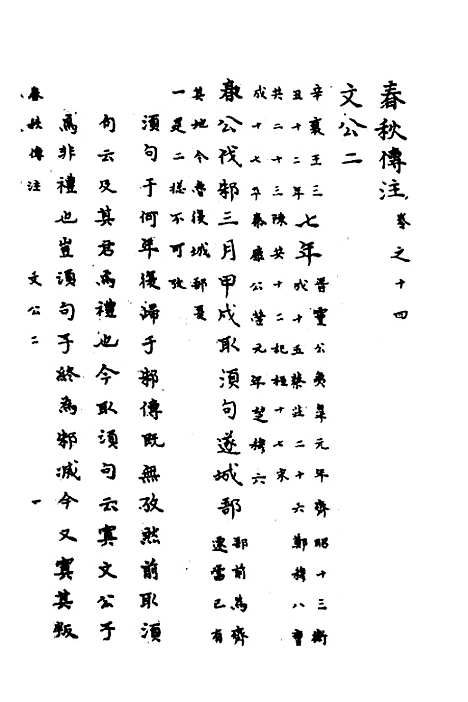 春秋傳注 卷之十四
文公二
辛襄王三
丑十二年
七年
晉靈公夷皐元年齊昭十三衛
成十五蔡莊二十六鄭穆八曹
共二十三陳共十二杞桓十七宋
成十七年秦康公罃元年楚穆六
春公伐邾三月甲戌取須句遂城郚
郚前為齊
遷當已有
其地今魯復城郚豈
一是二樣不可攷
須句于何年復歸于邾傳既無攷然前取須
句云及其君為禮也今取須句云寘文公子
為非禮也豈須句子終為邾滅今又寘其叛
春秋傳注 文公二 一